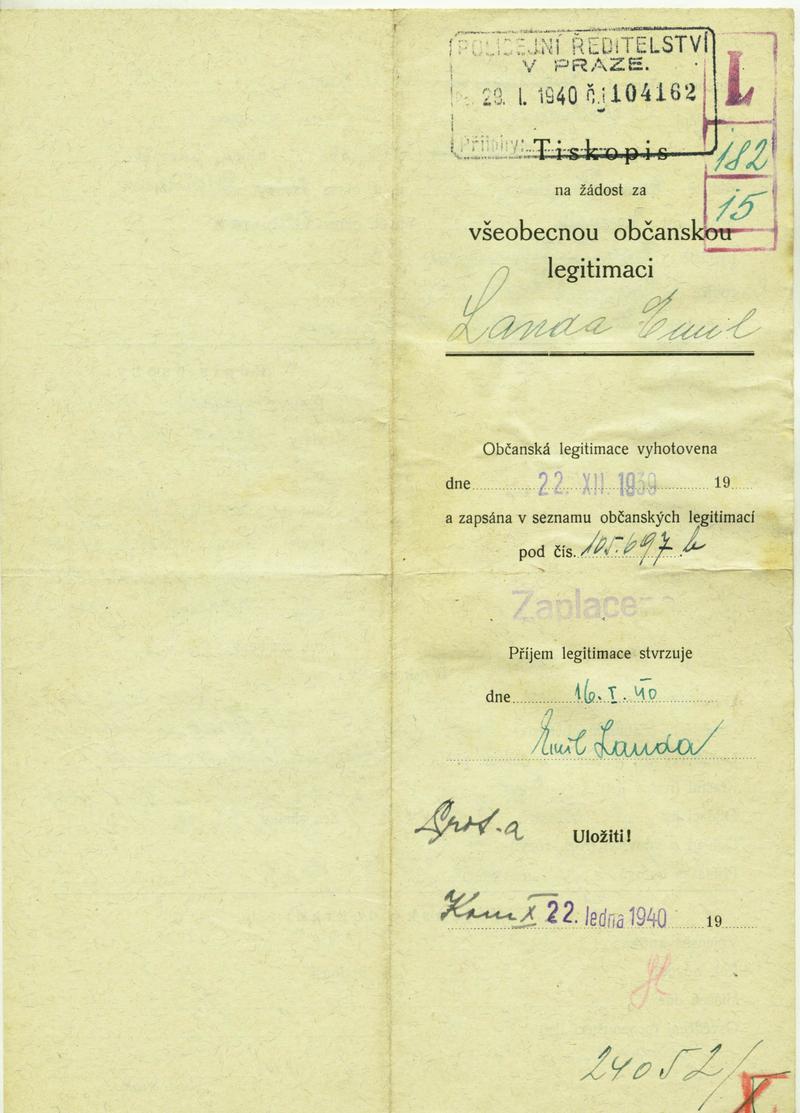 POLICEJNÍ ŘEDITELSTVÍ
V PRAZE.
29. I. 1940 č.j 104162
Přílohy:
L
182
15
Tiskopis
na žádost za
všeobecnou občanskou
legitimaci
Landa Emil
Občanská legitimace vyhotovena
dne 22. XII. 1939 19
a zapsána v seznamu občanských legitimací
pod čís. 105.697 b
Zaplaceno
Příjem legitimace stvrzuje
dne 16. I. 40
Emil Landa
Uložiti!
Kom X 22. ledna 1940 19
24052/X